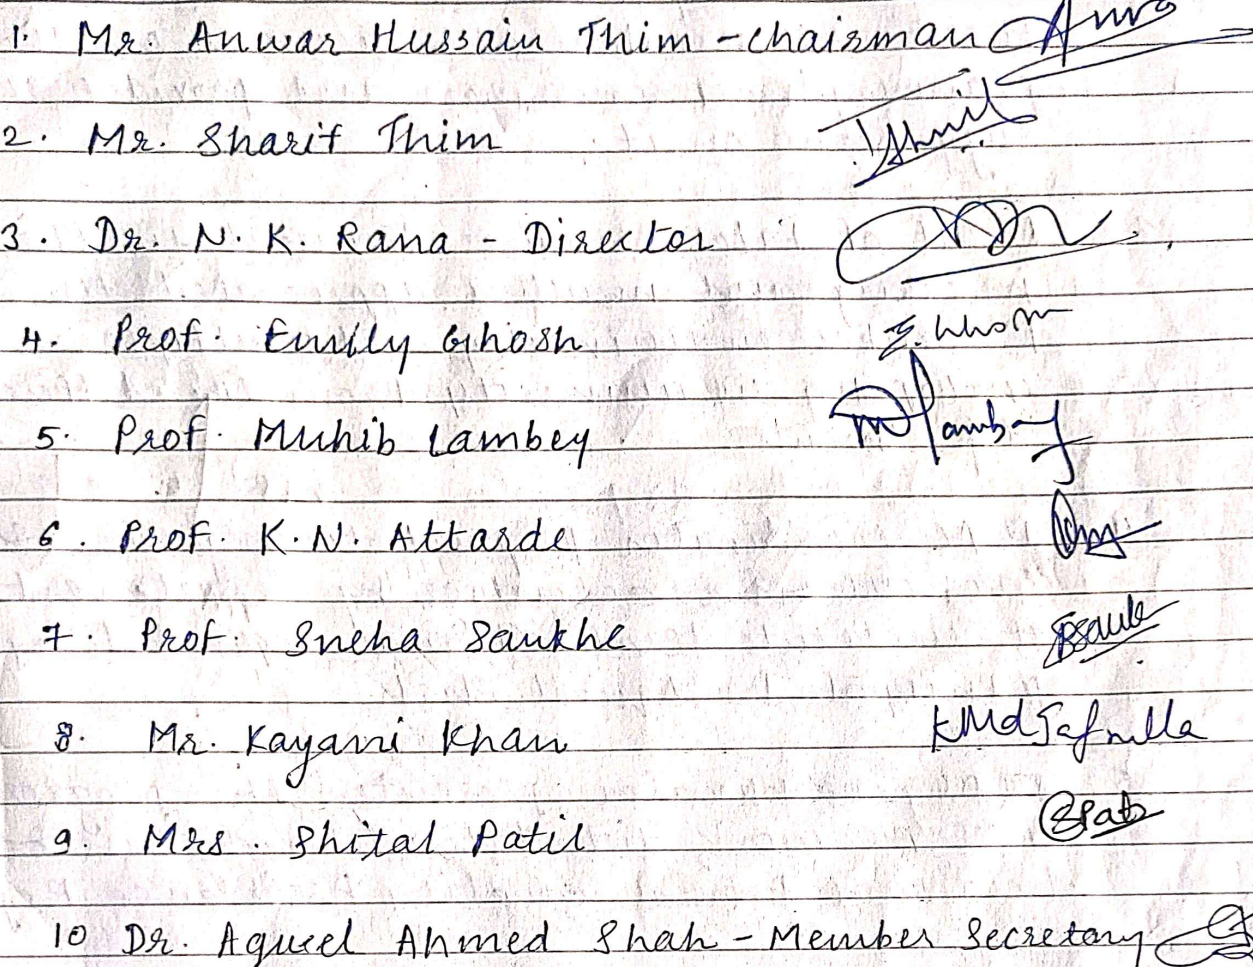 1. Mr. Anwar Hussain Thim - Chairman
2. Mr. Sharif Thim
3. Dr. N. K. Rana - Director
4. Prof. Emily Ghosh
5. Prof. Muhib Lambey
6. Prof. K. N. Attarde
7. Prof. Sneha Saukhe
8. Mr. Kayami Khan
9. Mrs. Shital Patil
10 Dr. Aqueel Ahmed Shah - Member Secretary